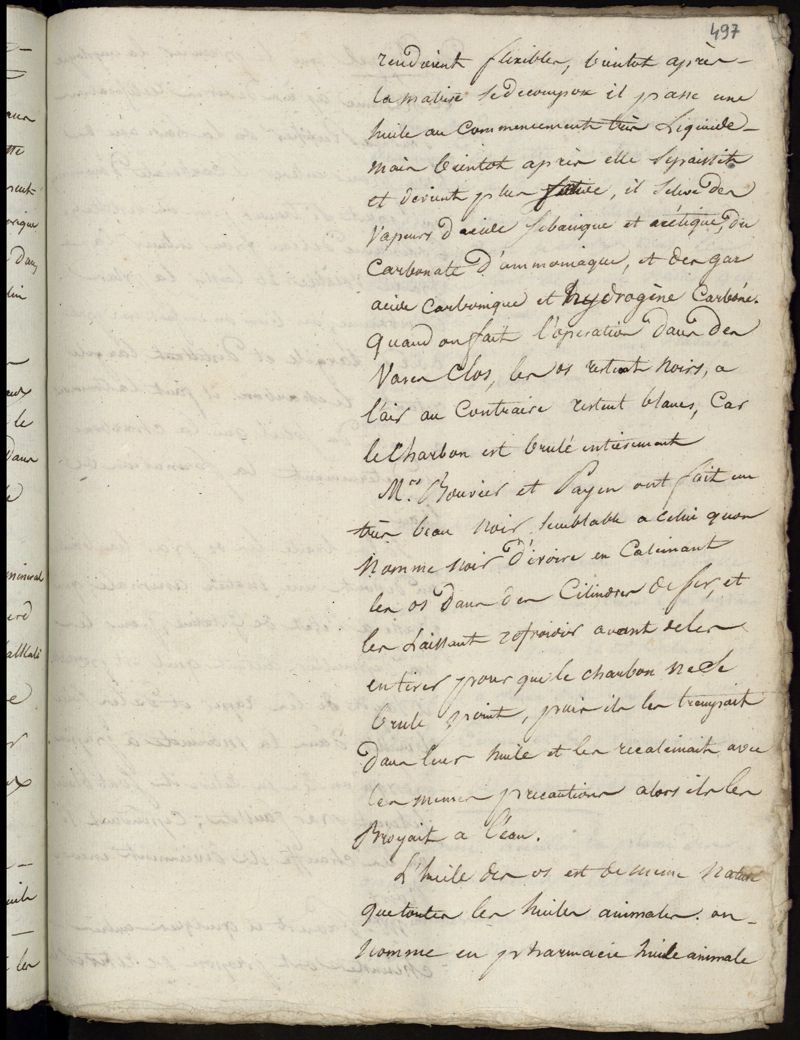 497
rendoient flexibles, bientot après
la matiere se decompose il passe une
huile au commencement très Liquide
mais bientot après elle sepaissit
et devient plus, il seleve des
Vapeurs d'acide sebacique et acétique, du
Carbonate d'ammoniaque, et des gaz
acide carbonique et hydrogène Carboné.
quand on fait l'operation dans des
Vases Clos, les os restent noirs, a
l'air au Contraire restent blancs, Car
le Charbon est brulé entierement
Mrs. Bouvier et Payen ont fait un
très beau noir, semblable a celui quon
Nomme noir d'ivoire en Calcinant
les os dans des Cilindres de fer, et
les Laissant refroidir avant de les
en tirer pour que le charbon ne se
brule point, puis ils les trempait
dans leur huile et les recalcinait avec
les memes precautions alors ils les
Broyait a l'eau.
L'huile des os est de meme Nature
que toutes les huiles animales. on
Nomme en pharmacie huile animale
aux
le
Dans
mineral
alkali